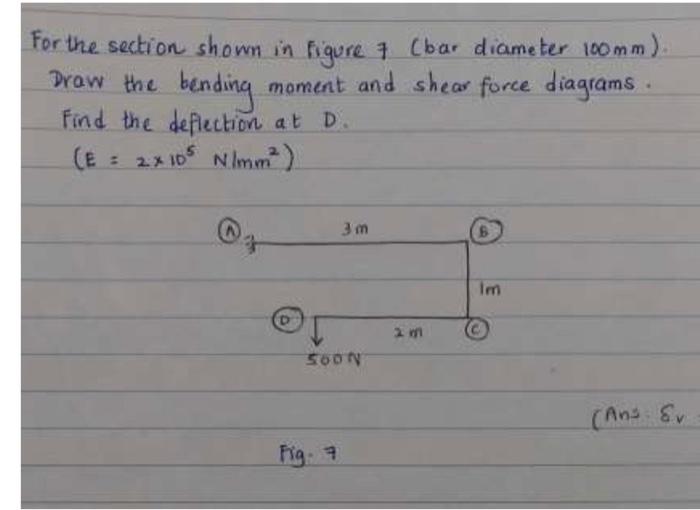 For the section shown in Figure 7 (bar diameter 100mm).
Draw the bending moment and shear force diagrams.
Find the deflection at D.
(E = 2×10⁵ N/mm²)
A 3m B
1m
D 2m C
500N
(Ans. δv
Fig. 7